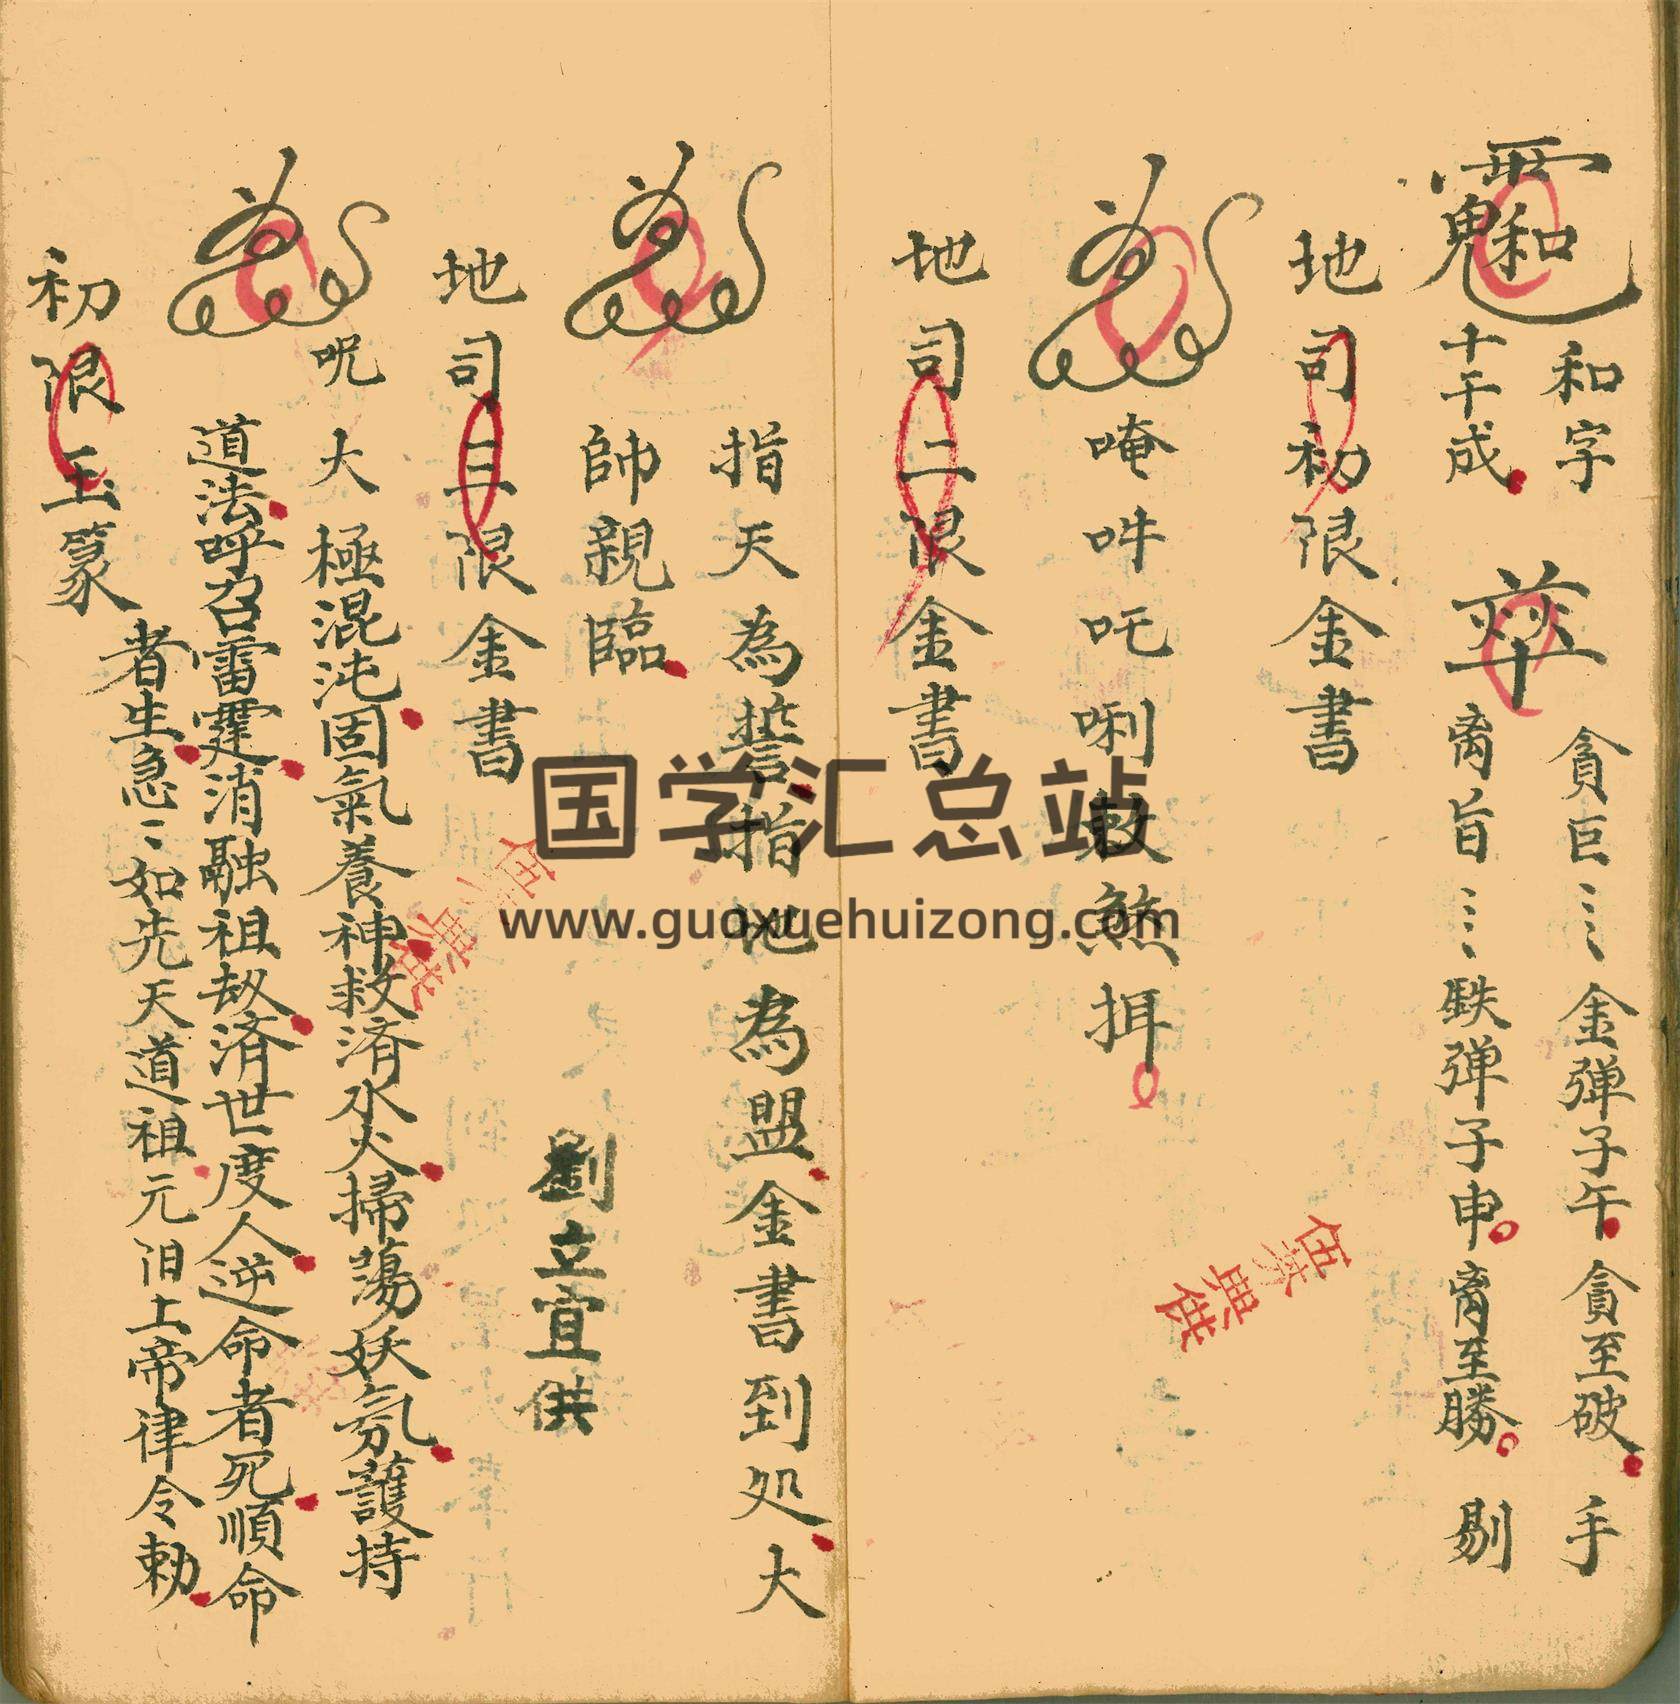 和字
十干成
貪巨⋮⋮金弹子午貪至破手
旨⋮⋮鉄弹子申 至勝剔
地司初限金書
唵吽吒唎敕煞挕
地司二限金書
指天為誓指地為盟金書到処大
帥親臨
劉立宣供
地司三限金書
呪大極混沌固氣養神救済水火掃蕩妖氛護持
道法呼召雷霆消融祖劫済世度人逆命者死順命
者生急⋮如先天道祖元洎上帝律令勅
初限玉篆
国学汇总站
www.guoxuehuizong.com